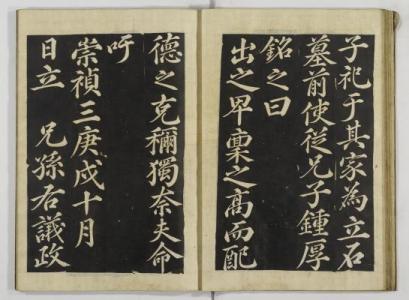 子祀于其家為立石
墓前使從兄子鍾厚
銘之曰
出之卑稟之髙而配
德之克穪獨奈夫命
吁
崇禎三庚戌十月
日立　兄孫右議政